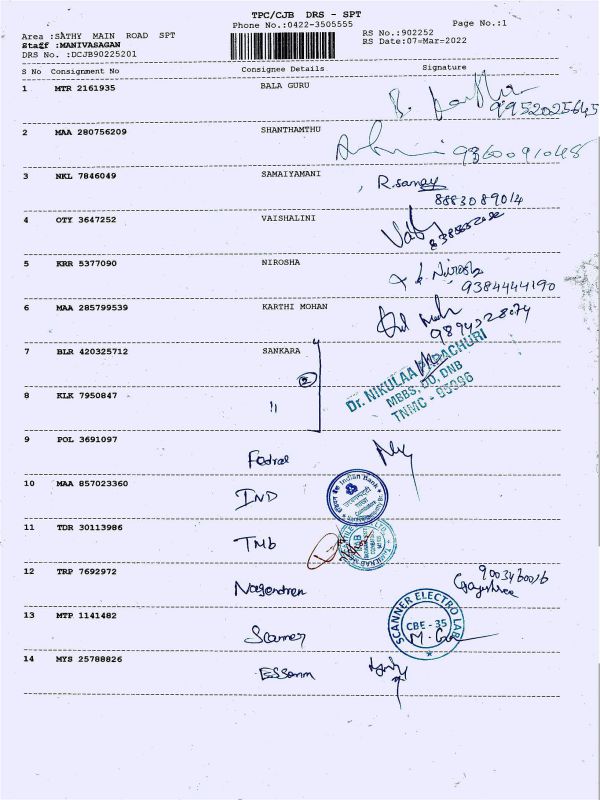 TPC/CJB DRS - SPT
Phone No.:0422-3505555 Page No.:1
Area :SATHY MAIN ROAD SPT RS No.:902252
Staff :MANIVASAGAN RS Date:07=Mar=2022
DRS No. :DCJB90225201
S No Consignment No Consignee Details Signature
1 MTR 2161935 BALA GURU
9952025645
2 MAA 280756209 SHANTHAMTHU
9360091048
3 NKL 7846049 SAMAIYAMANI R.Sanay
8883089014
4 OTY 3647252 VAISHALINI
5 KRR 5377090 NIROSHA Nirosha
9384444190
6 MAA 285799539 KARTHI MOHAN
9894228074
7 BLR 420325712 SANKARA
2
Dr. NIKULAA PARACHURI
MBBS, DO, DNB
TNMC - 95996
8 KLK 7950847 "
9 POL 3691097 Fedral
10 MAA 857023360 IND
Indian Bank
11 TDR 30113986 TMB
12 TRP 7692972 Nagendren
Gayathree
13 MTP 1141482 Scanner
SCANNER ELECTRO LAB
CBE - 35
14 MYS 25788826 ESSomm